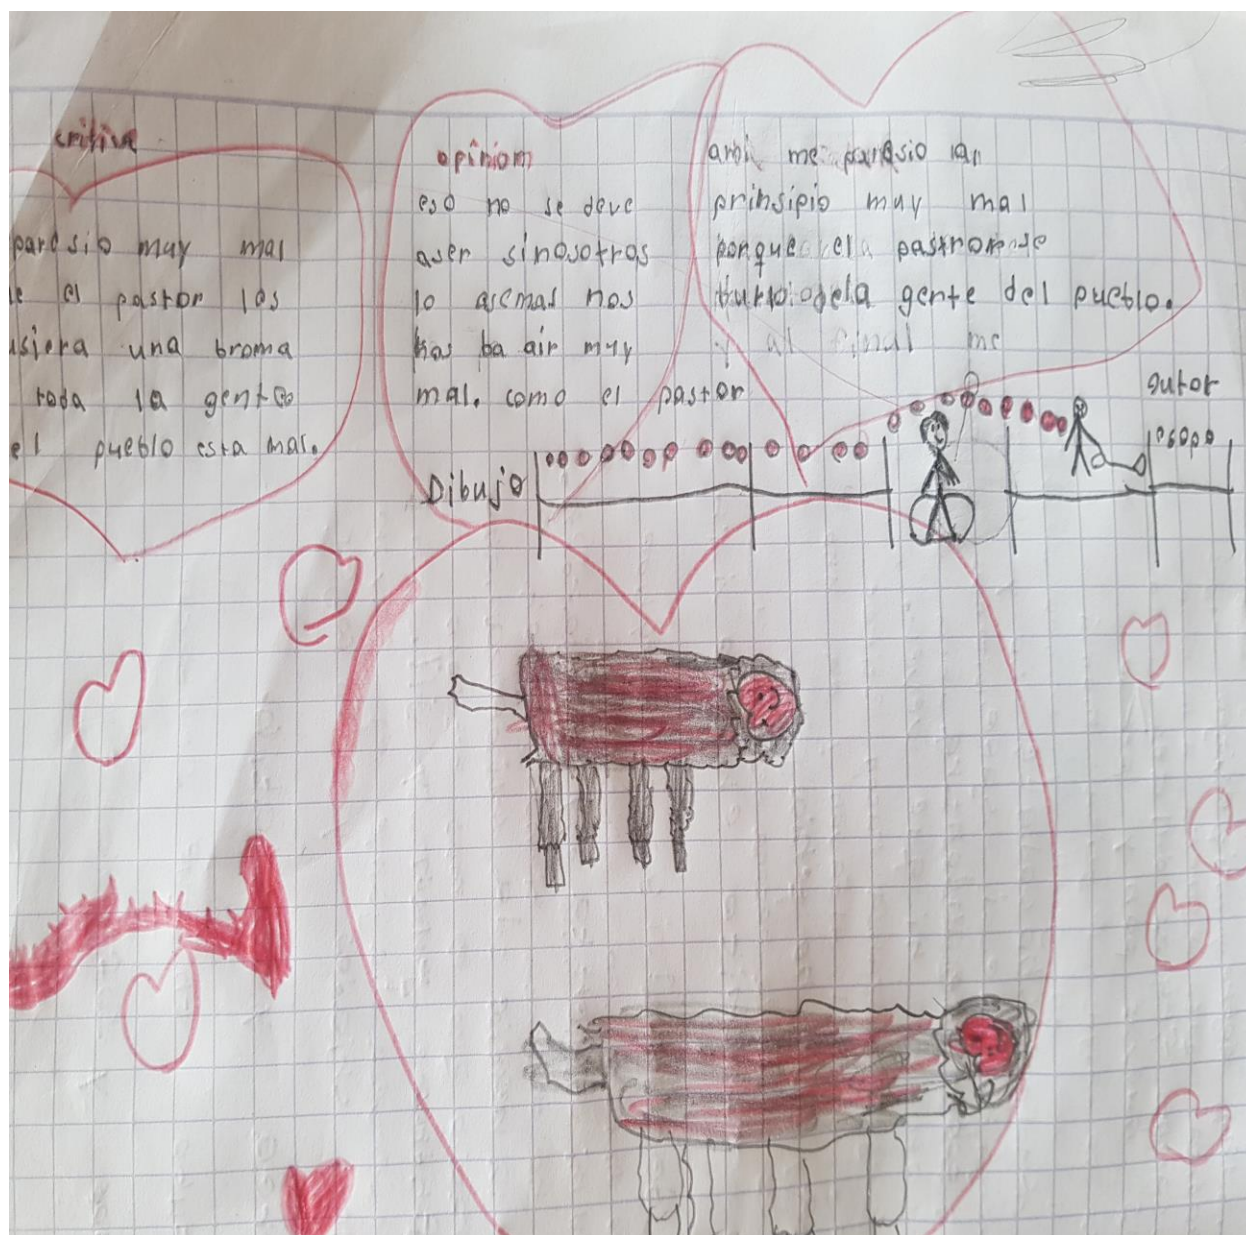 critica
paresio muy mal
e el pastor les
usiera una broma
toda la gente
el pueblo esta mal.
opiniom
eso no se deve
aser sinosotros
lo asemas nos
ba air muy
mal. como el pastor
me paresio
prinsipio muy mal
porque el pastror se
burlo dela gente del pueblo.
y al final me
autor
esopo
Dibujo